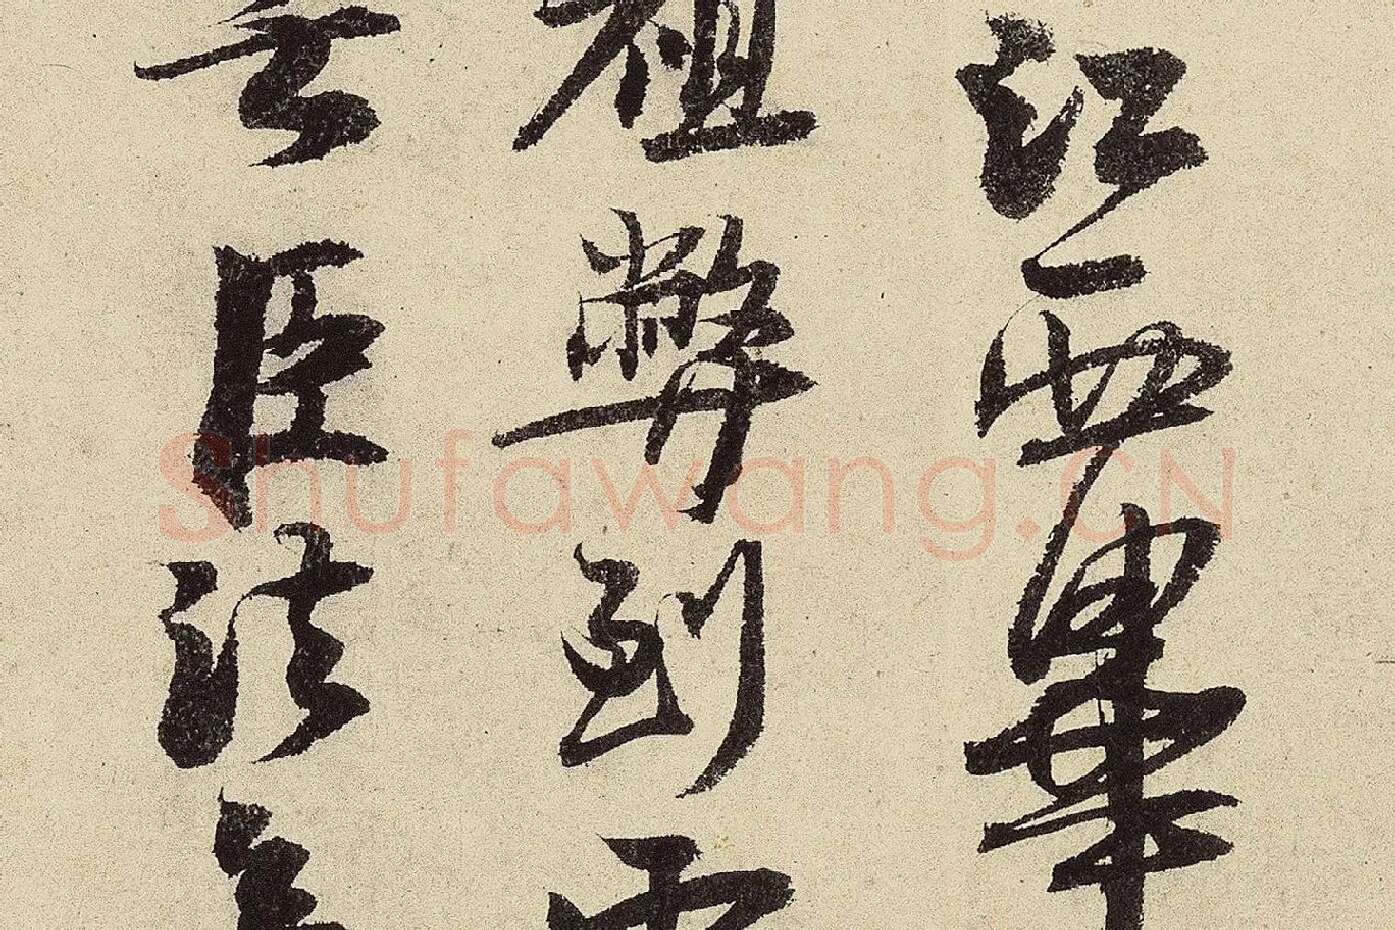 江西畢
祖弊到
臣法
Shufawang.CN